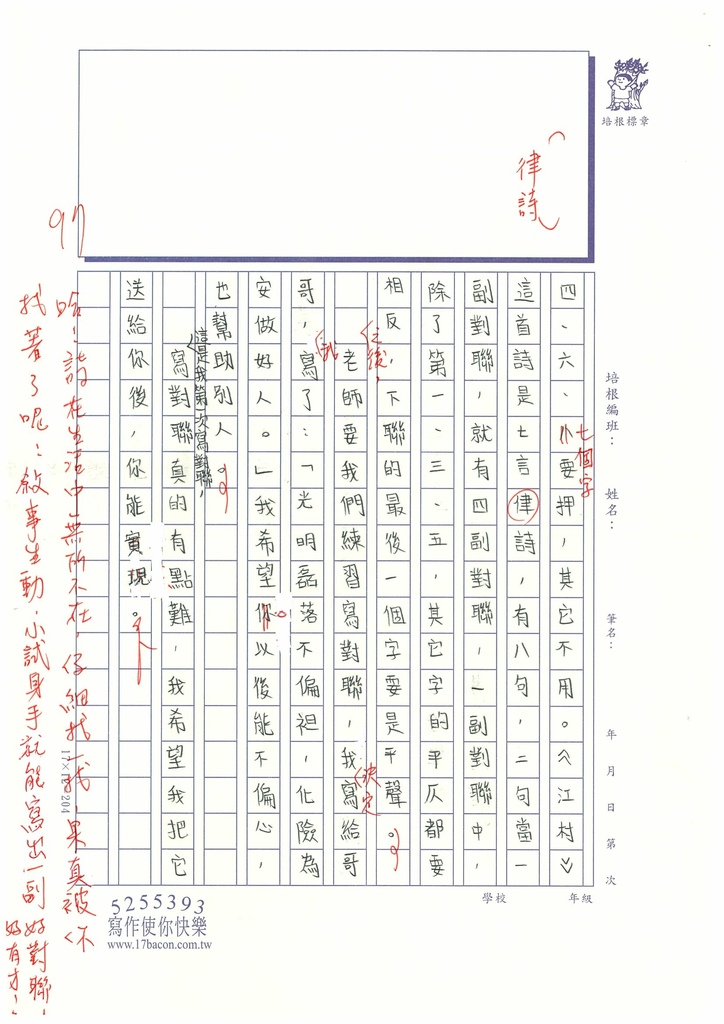 培根標章
(律詩)
97
培根編班：
姓名：
筆名：
年 月 日 第 次
四、六、八要押，其它不用。《江村》
七個字
這首詩是七言律詩，有八句，二句當一
副對聯，就有四副對聯，一副對聯中，
除了第一、三、五，其它字的平仄都要
相反，下聯的最後一個字要是平聲。
之後，
老師要我們練習寫對聯，我寫給哥
決定
我
哥，寫了：「光明磊落不偏袒，化險為
安做好人。」我希望你以後能不偏心，
也幫助別人。
這是我第一次寫對聯，
寫對聯真的有點難，我希望我把它
送給你後，你能實現。
17×12=204
哈！詩在生活中無所不在，仔細找一找，果真被你
找著了呢！敘事生動，小試身手就能寫出一副好對聯，
好有才！
學校
年級
5255393
寫作使你快樂
www.17bacon.com.tw